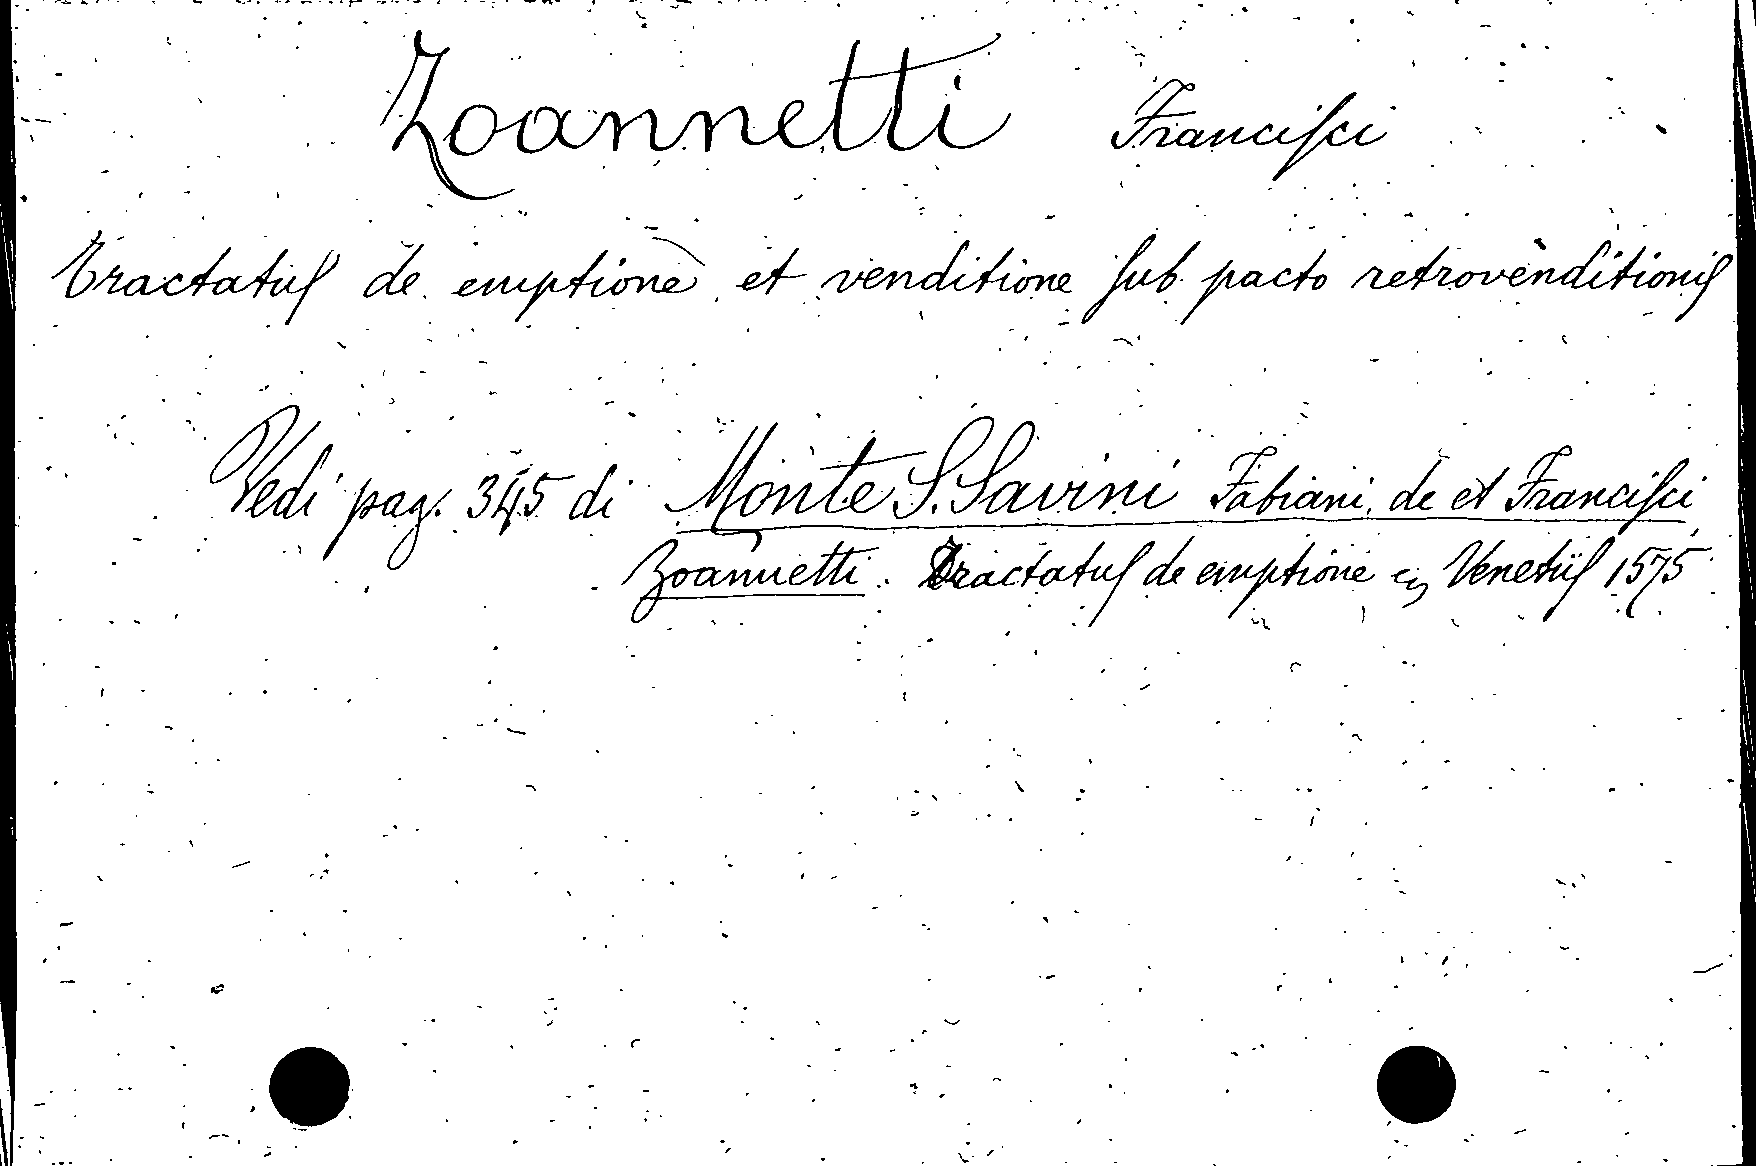 Zoannetti Franciſci
Tractatuſ de emptione et venditione ſub pacto retrovenditioniſ
Vedi pag. 345 di Monte S. Savini Fabiani, de et Franciſci
Zoannetti. Tractatuſ de emptione &c Venetiiſ 1575